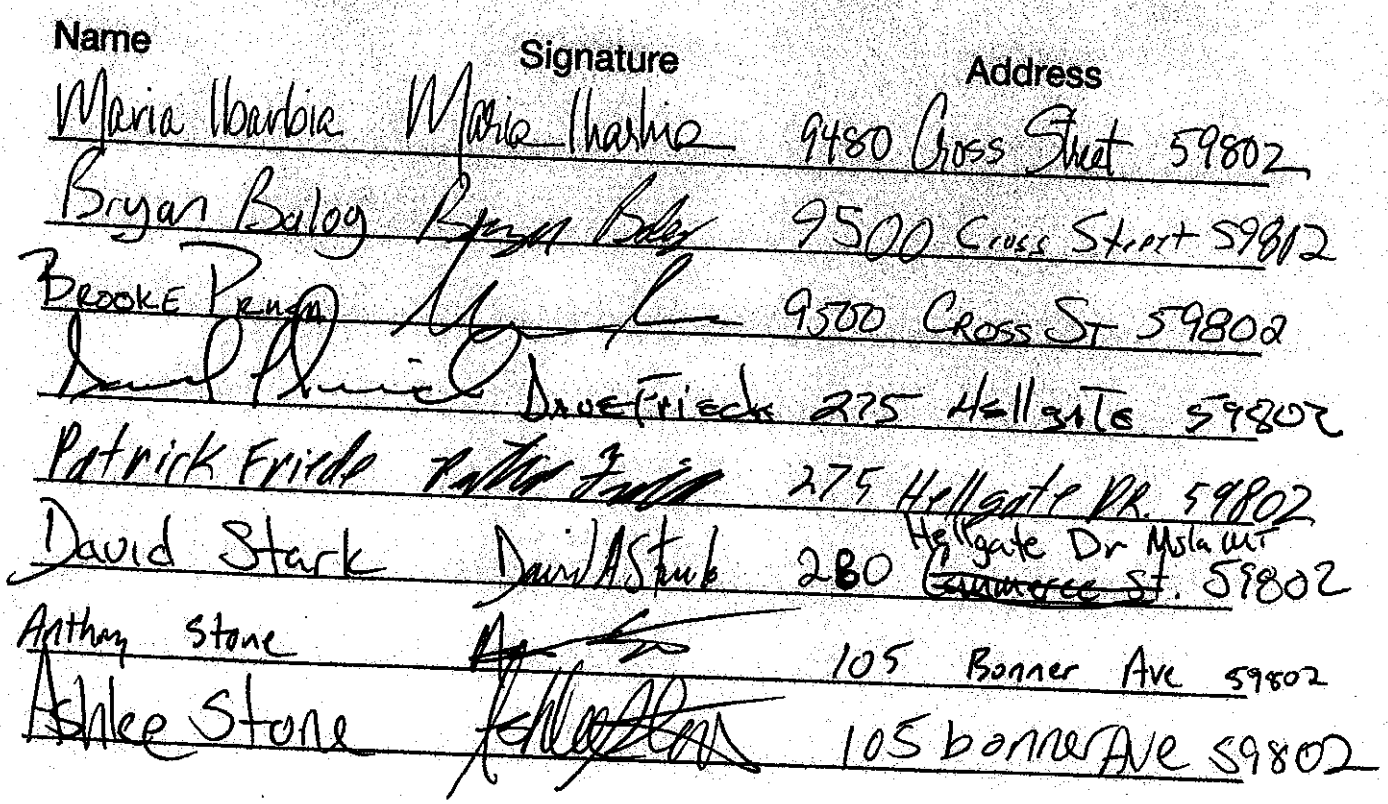 Name Signature Address
Maria Ibarbia Maria Ibarbia 9480 Cross Street 59802
Bryan Balog Bryan Balog 9500 Cross Street 59802
BROOKE 9500 CROSS ST 59802
Dave 275 Hellgate 59802
Patrick 275 Hellgate DR. 59802
David Stark David A Stark 280 Hellgate Dr Msla MT 59802
Anthony Stone 105 Bonner Ave 59802
Ashlee Stone Ashlee Stone 105 bonner Ave 59802